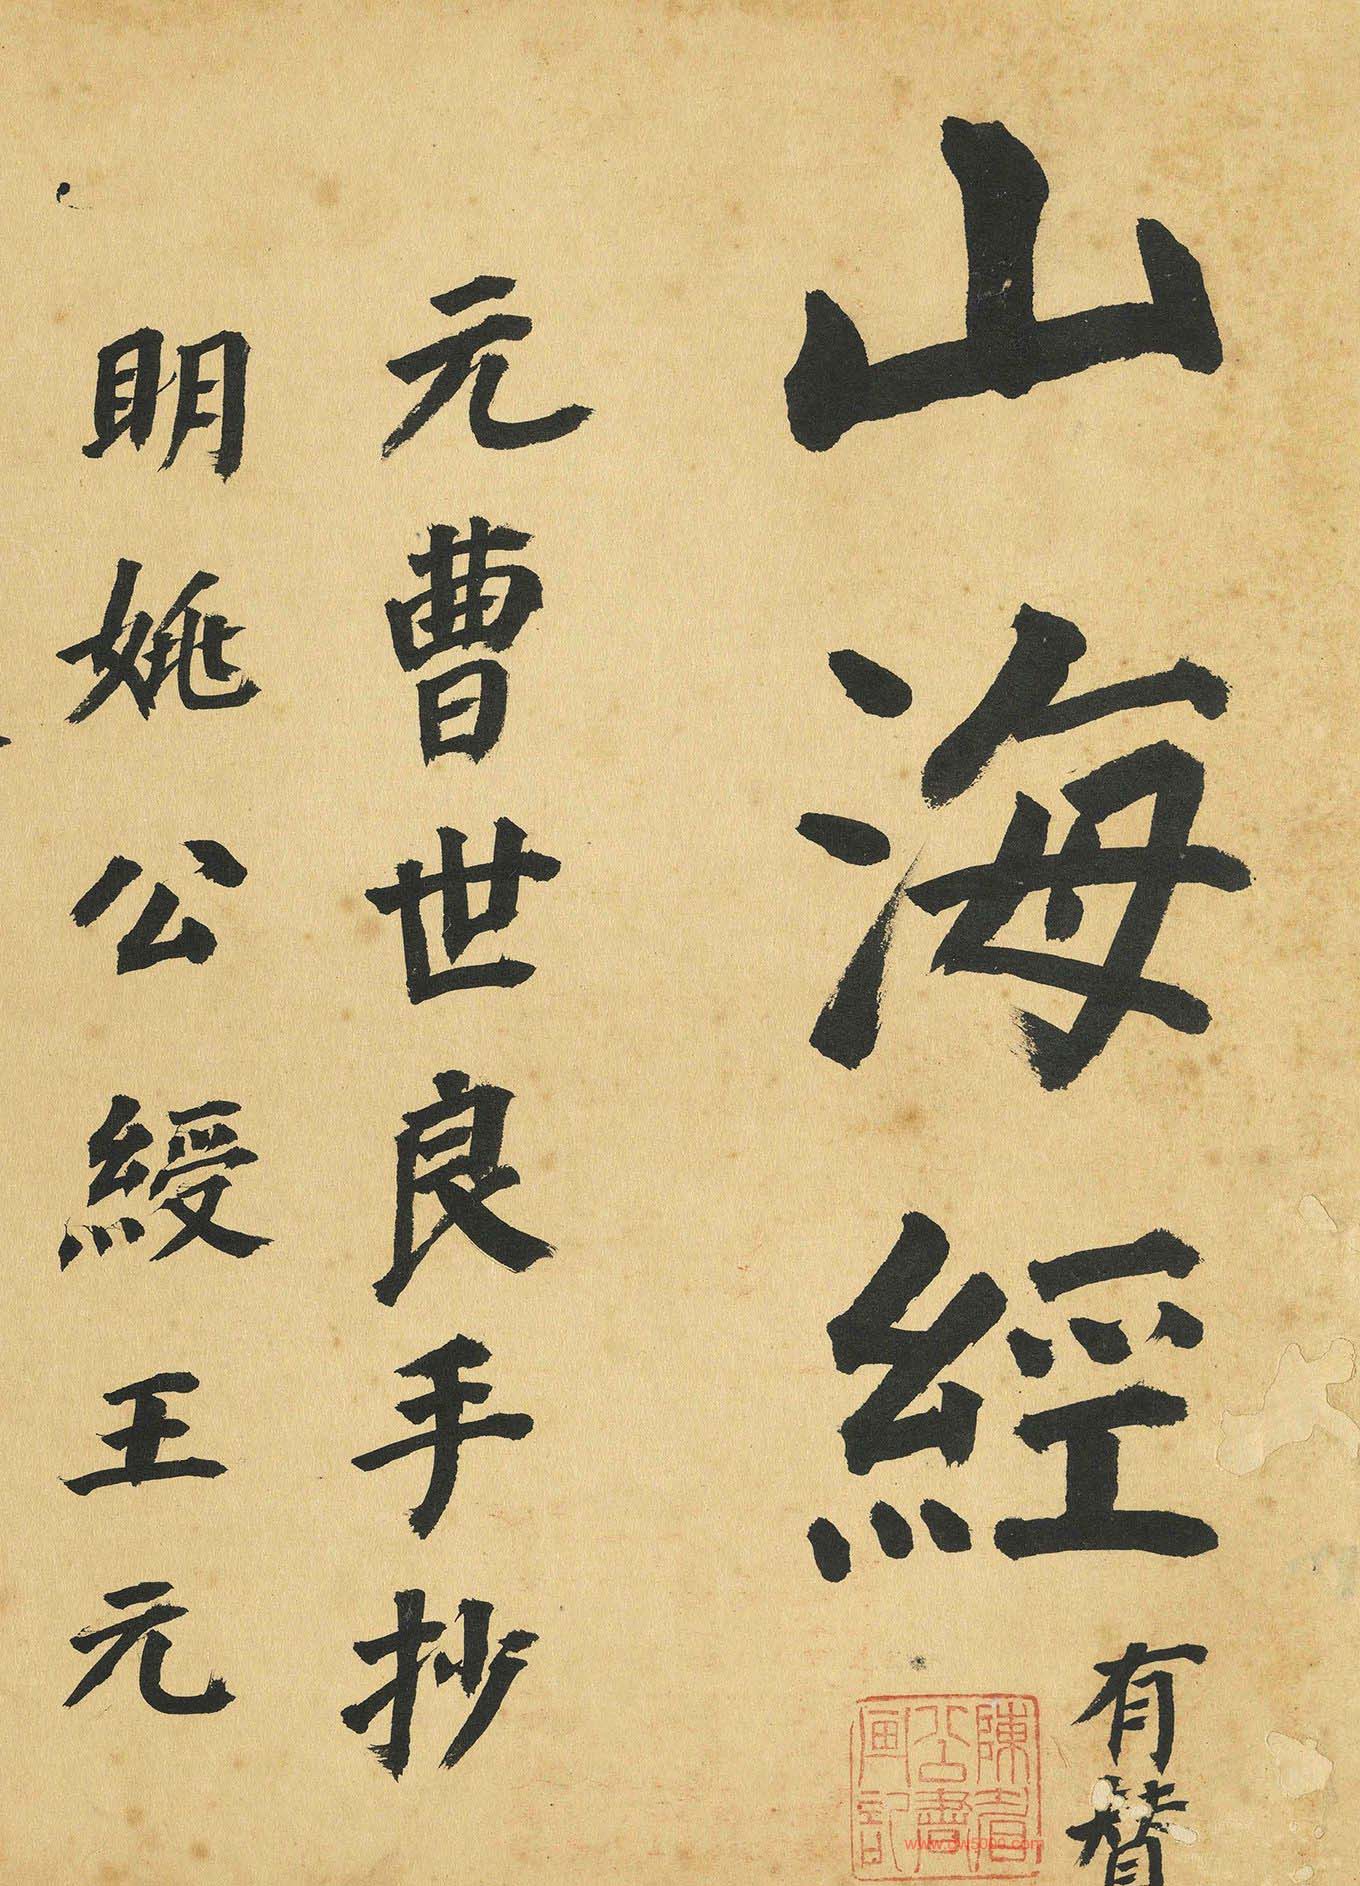 山海經
有贊
元曹世良手抄
明姚公綬王元
陳眉公書畫記
www.dw5000.com